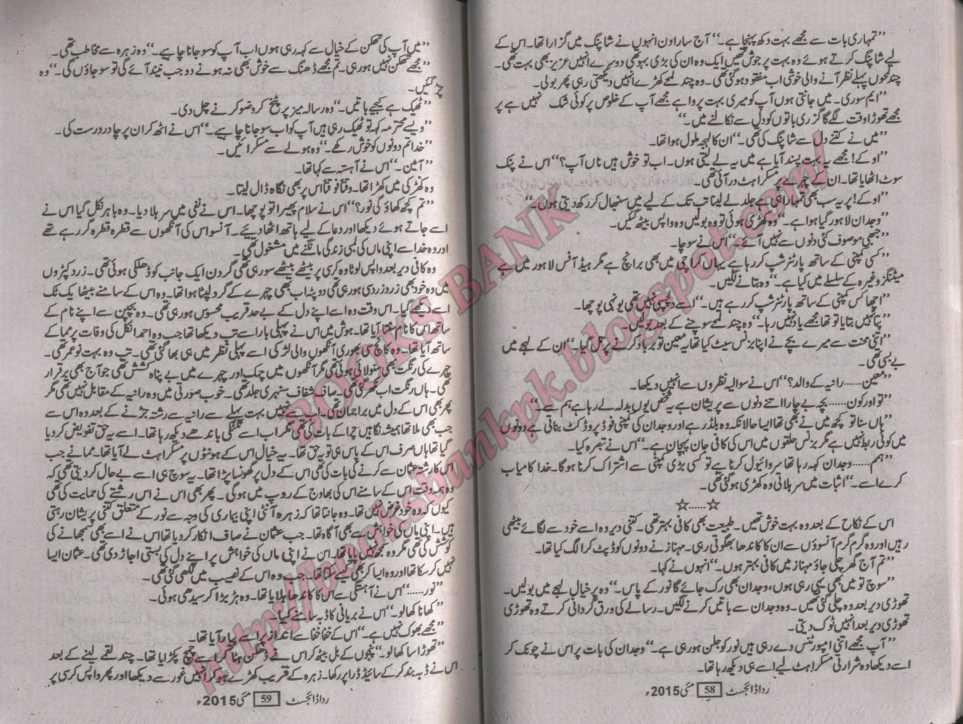 "تمہاری بات سے مجھے بہت دکھ پہنچا ہے۔" آج سارا دن انہوں نے شاپنگ میں گزارا تھا۔ اس کے
لیے شاپنگ کرتے ہوئے وہ بہت پرجوش تھیں ایک وہ ان کی بڑی بہو تھی دوسرے انہیں عزیز بھی بہت تھی۔
چند لمحوں پہلے نظر آنے والی خوشی اب مفقود ہو گئی تھی۔ وہ چند لمحے کھڑے انہیں دیکھتی رہی پھر بولی۔
"ایم سوری۔ میں جانتی ہوں آپ کو میری بہت پروا ہے مجھے آپ کے خلوص پر کوئی شک نہیں ہے پر
مجھے تھوڑا وقت لگے گا گزری باتوں کو دل سے نکالنے میں۔"
"میں نے کتنے دل سے شاپنگ کی تھی۔" ان کا لہجہ ملول ہوا تھا۔
"اوکے! مجھے یہ بہت پسند آیا ہے میں یہ لے لیتی ہوں۔ اب تو خوش ہیں ناں آپ؟" اس نے پنک
سوٹ اٹھایا تھا۔ ان کے چہرے پر مسکراہٹ در آئی تھی۔
"اوکے! پر یہ سب بھی تمہارا ہی ہے جلد لے لینا تب تک کے لیے میں سنبھال کر رکھ دیتی ہوں۔"
"وجدان لاہور گیا ہوا ہے۔" وہ کھڑی ہوئی تو وہ بولیں وہ واپس بیٹھ گئی۔
"جبھی موصوف کئی دنوں سے نہیں آئے۔" اس نے سوچا۔
"کسی کمپنی کے ساتھ پارٹنر شپ کر رہا ہے یہاں کراچی میں بھی برانچ ہے مگر ہیڈ آفس لاہور میں ہے
میٹنگز وغیرہ کے سلسلے میں گیا ہے۔" وہ بتانے لگیں۔
"اچھا کس کمپنی کے ساتھ پارٹنر شپ کر رہے ہیں۔" اسے دلچسپی نہیں تھی یونہی پوچھا۔
"پتا نہیں بتایا تو تھا مجھے یاد نہیں رہا۔" وہ چند لمحے سوچنے کے بعد بولیں۔
"اتنی محنت سے میرے بچے نے اپنا بزنس سیٹ کیا تھا یہ معین تو برباد کرنے پر تل گیا۔" ان کے لہجے میں
بے بسی تھی۔
"معین...... رانیہ کے والد؟" اس نے سوالیہ نظروں سے انہیں دیکھا۔
"تو اور کون...... بچہ بے چارا اتنے دنوں سے پریشان ہے یہ شخص یوں بدلہ لے رہا ہے ہم سے۔"
"ہاں سنا تو کچھ میں نے بھی تھا ایسا حالانکہ وہ بلڈر ہے اور وجدان کی کمپنی فوڈ پروڈکٹ بناتی ہے دونوں
میں کوئی ربط نہیں ہے مگر بزنس حلقوں میں اس کی کافی جان پہچان ہے۔" اس نے تبصرہ کیا۔
"ہم...... وجدان کہہ رہا تھا سروائیول کرنا ہے تو کسی بڑی کمپنی سے اشتراک کرنا ہوگا۔ خدا کامیاب
کرے اسے۔" اثبات میں سر ہلاتی وہ کھڑی ہو گئی تھی۔
☆......☆
اس کے نکاح کے بعد وہ بہت خوش تھیں۔ طبیعت بھی کافی بہتر تھی۔ کتنی دیر وہ اسے خود سے لگائے بیٹھی
رہیں اور وہ گرم گرم آنسوؤں سے ان کا کاندھا بھگوتی رہی۔ مہناز نے دونوں کو ڈپٹ کر الگ کیا تھا۔
"تم آج گھر چلی جاؤ مہناز میں کافی بہتر ہوں۔" انہوں نے کہا۔
"سوچ تو میں بھی یہی رہی ہوں، وجدان بھی رک جائے گا نور کے پاس۔" وہ پر خیال لہجے میں بولیں۔
تھوڑی دیر بعد وہ چلی گئی تھیں۔ وہ وجدان سے باتیں کرنے لگیں۔ رسالے کی ورق گردانی کرتے وہ تھوڑی
تھوڑی دیر بعد انہیں ٹوک دیتی۔
"آپ مجھے اتنی امپورٹنس دے رہی ہیں نور کو جلن ہو رہی ہے۔" وجدان کی بات پر اس نے چونک کر
اسے دیکھا وہ شرارتی مسکراہٹ لیے اسے ہی دیکھ رہا تھا۔
ردا ڈائجسٹ 58 مئی 2015ء
"میں آپ کی تھکن کے خیال سے کہہ رہی ہوں اب آپ کو سو جانا چاہیے۔" وہ زہرہ سے مخاطب تھی۔
"مجھے تھکن نہیں ہو رہی۔ تم مجھے ڈھنگ سے خوش بھی نہ ہونے دو جب نیند آئے گی تو سو جاؤں گی۔" وہ
چڑ گئیں۔
"ٹھیک ہے کیجیے باتیں۔" وہ رسالہ میز پر پٹخ کر وضو کرنے چل دی۔
"ویسے محترمہ کہہ تو ٹھیک رہی ہیں آپ کو اب سو جانا چاہیے۔" اس نے اٹھ کر ان پر چادر درست کی۔
"خدا تم دونوں کو خوش رکھے۔" وہ ہولے سے مسکرائیں۔
"آمین۔" اس نے آہستہ سے کہا تھا۔
وہ کھڑکی میں کھڑا تھا۔ وقتاً فوقتاً اس پر بھی نگاہ ڈال لیتا۔
"تم کچھ کھاؤ گی نور؟" اس نے سلام پھیرا تو پوچھا۔ اس نے نفی میں سر ہلا دیا۔ وہ باہر نکل گیا اس نے
اسے جاتے ہوئے دیکھا اور دعا کے لیے ہاتھ اٹھا دیئے۔ آنسو اس کی آنکھوں سے قطرہ قطرہ گر رہے تھے
اور وہ خدا سے اپنی ماں کی لمبی زندگی مانگنے میں مشغول تھی۔
وہ کافی دیر بعد واپس لوٹا وہ کرسی پر بیٹھے بیٹھے سو رہی تھی گردن ایک جانب کو ڈھلکی ہوئی تھی۔ زرد کپڑوں
میں وہ خود بھی زرد زرد ہی ہو رہی تھی دوپٹا اب بھی چہرے کے گرد لپٹا ہوا تھا۔ وہ اس کے سامنے بیٹھا یک ٹک
اسے دیکھے گیا۔ اس وقت وہ اسے اپنے دل کے بے حد قریب محسوس ہو رہی تھی۔ وہ بچپن سے اپنے نام کے
ساتھ اس کا نام سنتا آیا تھا۔ ہوش میں اس نے پہلی بار اسے تب دیکھا تھا جب وہ احمد انکل کی وفات پر مما کے
ساتھ آیا تھا۔ وہ کانچ سی بھوری آنکھوں والی لڑکی اسے پہلی نظر میں ہی بھا گئی تھی۔ تب وہ بہت نو عمر تھی۔
چہرے کی رنگت بھی سنولائی ہوئی تھی مگر آنکھوں میں چمک اور چہرے میں بے پناہ کشش تھی جو آج بھی برقرار
تھی۔ ہاں رنگت اب نکھر گئی تھی۔ صاف شفاف سنہری جلد تھی۔ خوب صورتی میں وہ رانیہ کے مقابل نہیں تھی مگر
پھر بھی اس کے دل میں براجمان تھی۔ اب سے نہیں بہت پہلے سے رانیہ سے رشتہ جڑنے کے بعد وہ اس سے
جب بھی ملا تھا ہمیشہ نگاہیں چرا کے بات کی تھی مگر اب اسے ٹکٹکی باندھے دیکھ رہا تھا۔ اسے یہ حق تفویض کر دیا
گیا تھا ہاں صرف اس کے پاس ہی یہ حق تھا۔ یہ خیال اس کے ہونٹوں پر مسکراہٹ لے آیا تھا۔ مما نے جب
اس کا رشتہ عثمان سے کرنے کی بات کی تھی اس کے دل پر گھونسا پڑا تھا۔ یہ سوچ ہی اسے بے حال کر دیتی تھی کہ
وہ ہمہ وقت اس کے سامنے اس کی بھاوج کے روپ میں ہوگی۔ پھر بھی اس نے اس رشتے کی حمایت کی تھی
کیوں کہ وہ خود غرض نہیں تھا۔ وہ جانتا تھا کہ زہرہ آنٹی اپنی بیماری کی وجہ سے نور کے متعلق کتنی پریشان رہتی
ہیں۔ اپنی ماں کی خواہش سے بھی آگاہ تھا۔ جب عثمان نے صاف انکار کر دیا تھا اس نے اسے بھی سمجھانے کی
کوشش کی تھی مگر وہ سمجھ نہیں پایا تھا۔ اس نے اپنی ماں کی خواہش پر اپنے دل کی بستی اجاڑ دی تھی۔ عثمان ایسا
نہیں کر سکا تھا اور وہ ایسا کر بھی کیسے سکتا تھا۔ جب وہ اس کے نصیب میں لکھی گئی تھی۔
"نور......" اس نے آہستگی سے اس کا کاندھا ہلایا تھا۔ وہ ہڑبڑا کر سیدھی ہوئی۔
"کھانا کھا لو۔" اس نے بریانی کا ڈبہ سامنے کیا۔
"مجھے بھوک نہیں ہے۔" اس کے خفا خفا سے انداز پر اسے پیار آیا تھا۔
"تھوڑا سا کھا لو۔" پنجوں کے بل بیٹھ کر اس نے ڈھکن ہٹا کر اسے چمچ پکڑایا تھا۔ چند لقمے لینے کے بعد
اس نے ڈبہ بند کر کے سائیڈ دراز پر رکھا۔ زہرہ کے قریب کھڑے ہو کر انہیں غور سے دیکھا اور پھر واپس کرسی پر
ردا ڈائجسٹ 59 مئی 2015ء
BOOKS BANK
http://booksbankpk.blogspot.com/